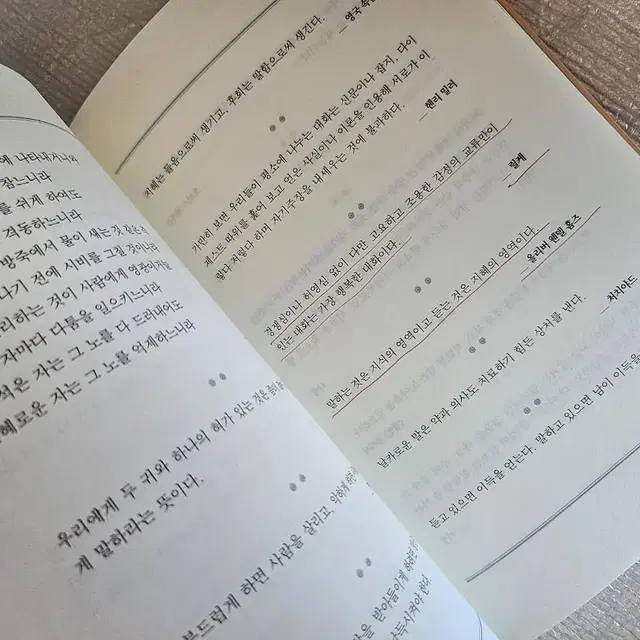 에 나타내거니와
잠느니라
를 쉬게 하여도
격동하느니라
방죽에서 물이 새는 것 같은즉
나기 전에 시비를 그칠 것이니라
리하는 것이 사람에게 영광이거늘
자마다 다툼을 일으키느니라
석은 자는 그 노를 다 드러내어도
혜로운 자는 그 노를 억제하느니라
우리에게 두 귀와 하나의 혀가 있는 것은
게 말하라는 뜻이다.
부드럽게 하면 사람을 살리고,
을 받아들이게
지혜는 들음으로써 생기고, 후회는 말함으로써 생긴다.
영국 속담
가만히 보면 우리들이 평소에 나누는 대화는 신문이나 잡지, 다이
제스트 따위를 훑어 보고 얻은 사실이나 이론을 인용해 서로가 이
렇다 저렇다 하며 자기주장을 내세우는 것에 불과하다.
헨리 밀러
경쟁심이나 허영심 없이 다만 고요하고 조용한 감정의 교류만이
있는 대화는 가장 행복한 대화이다.
릴케
말하는 것은 지식의 영역이고 듣는 것은 지혜의 영역이다.
올리버 웬델 홈즈
날카로운 말은 약과 의사도 치료하기 힘든 상처를 낸다.
처치야드
듣고 있으면 이득을 얻는다. 말하고 있으면 남이 이득을